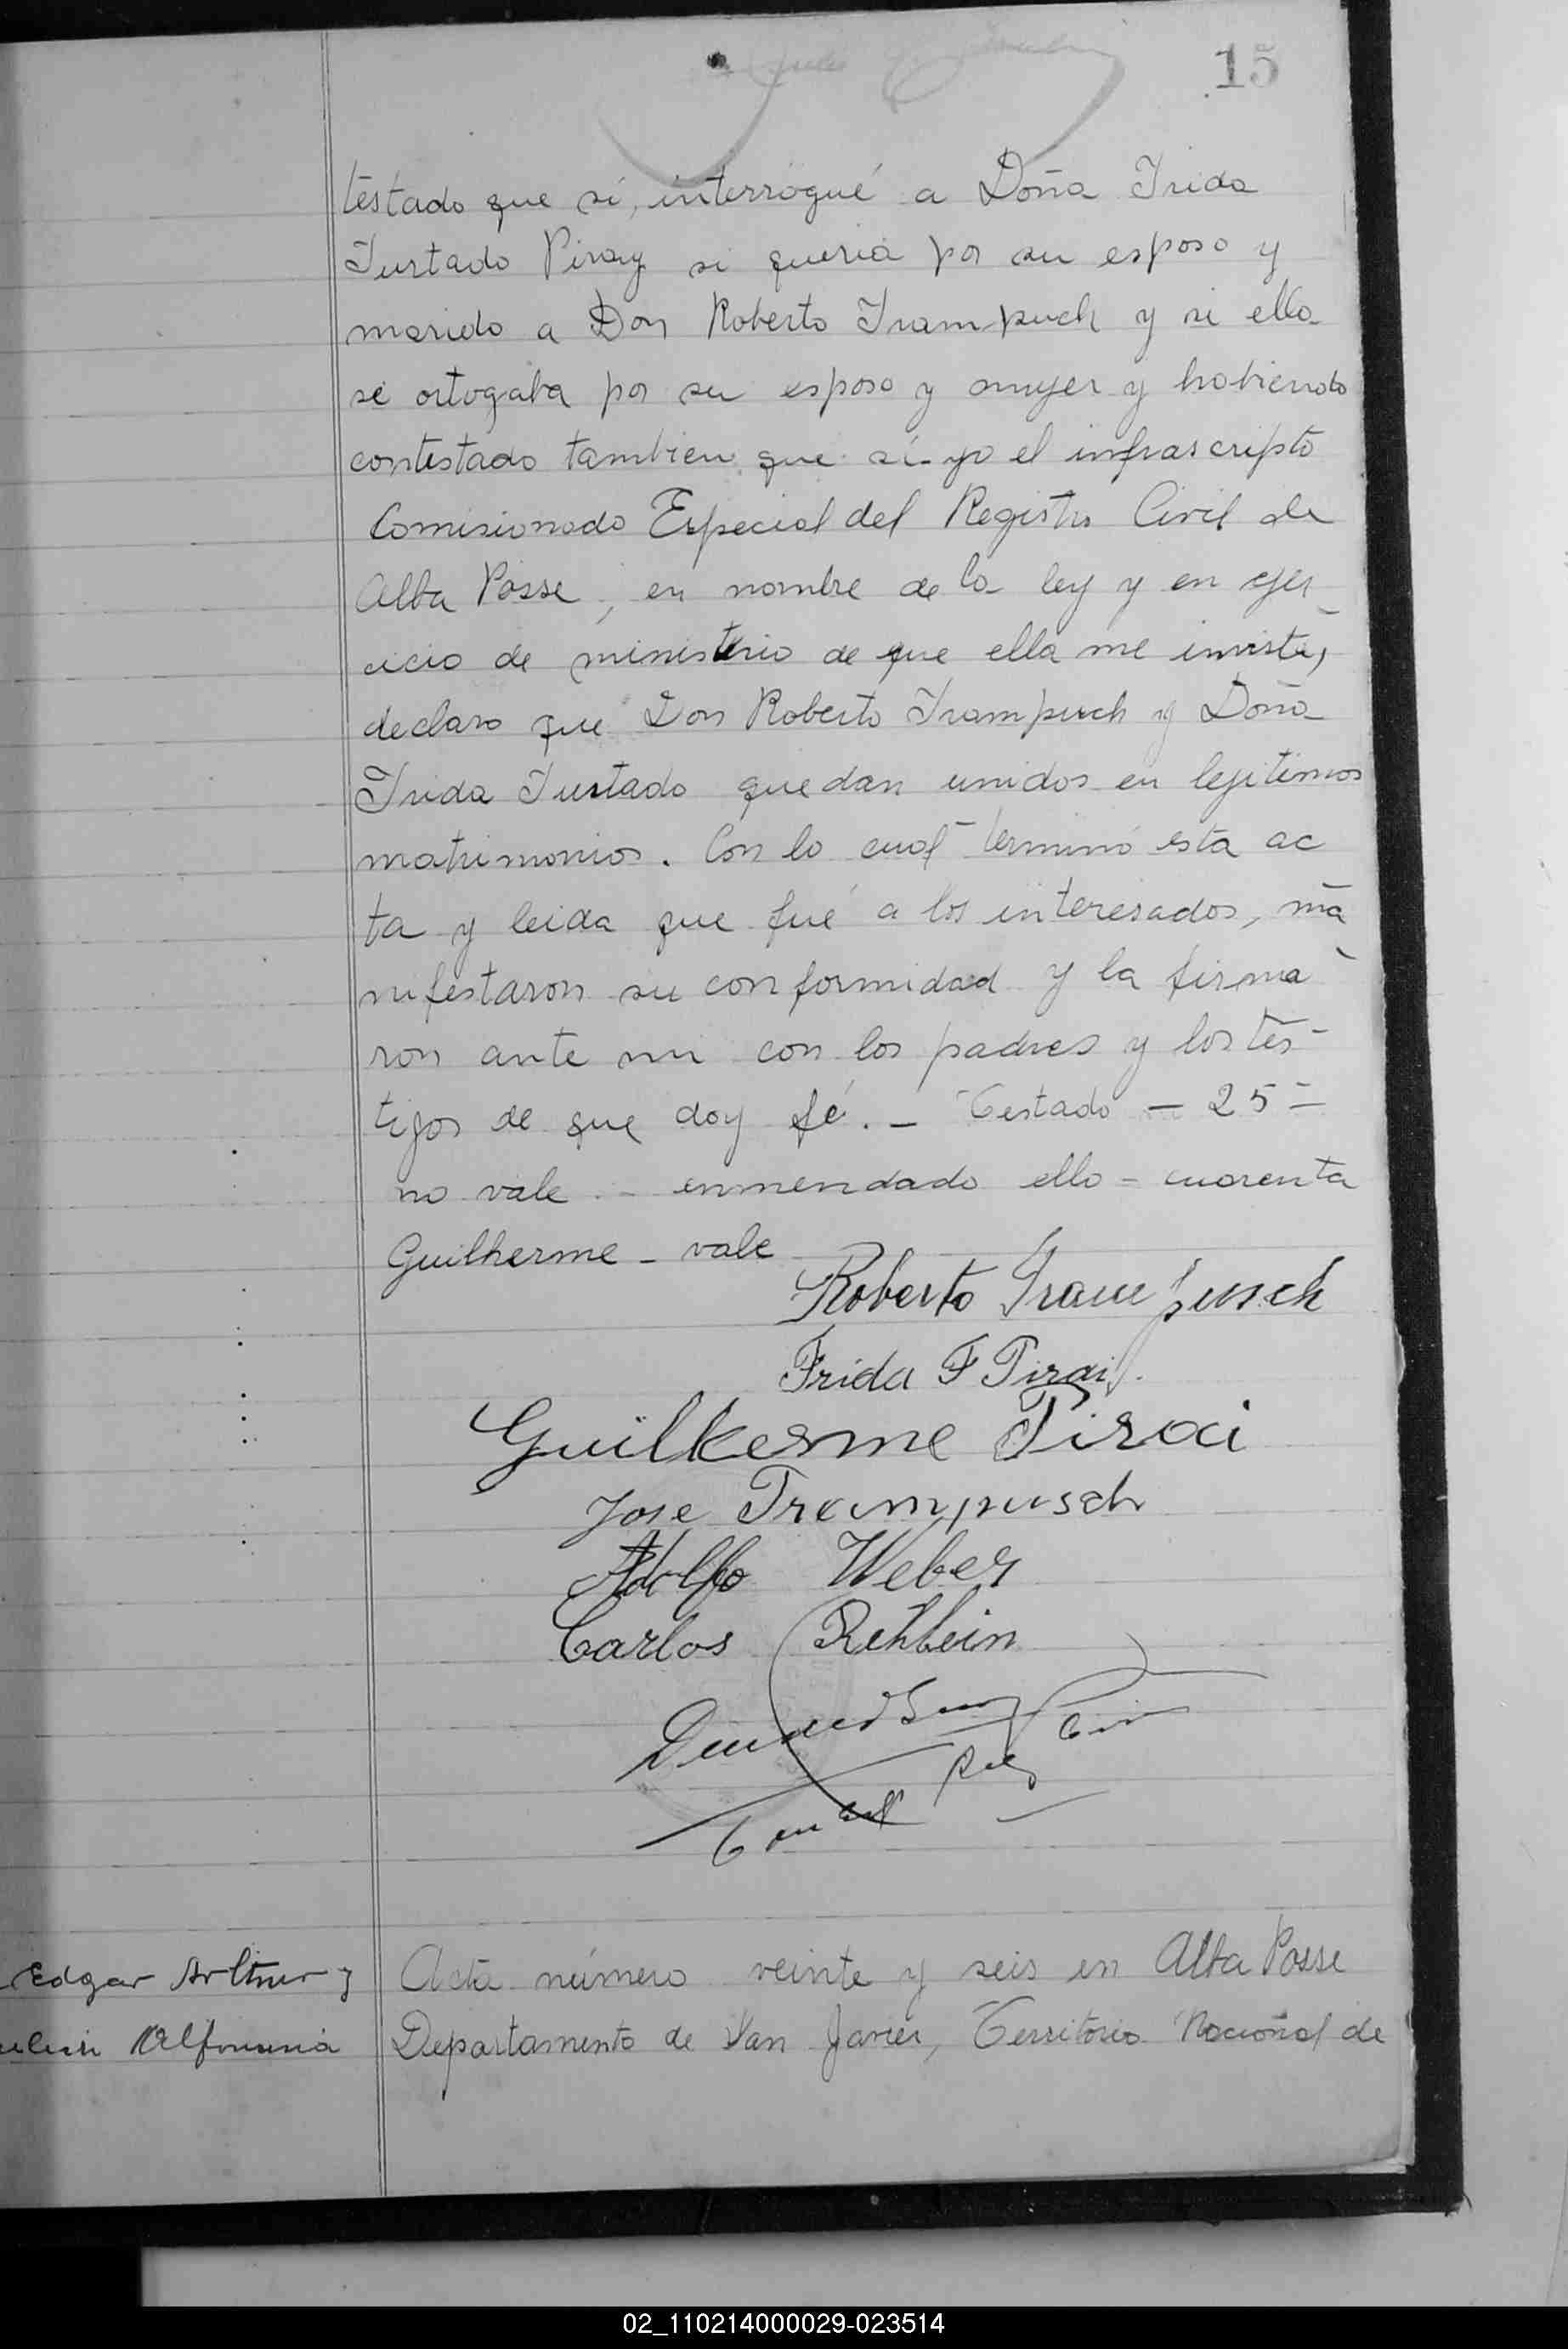 15
testado que sí, interrogué a Doña Frida
Furtado Piray si queria por su esposo y
marido a Don Roberto Trampuch y si ella
se ortogaba por su esposo y mujer y habiendo
contestado tambien que sí yo el infrascripto
Comisionado Especial del Registro Civil de
Alba Posse, en nombre de la ley y en ejer
cicio de ministerio de que ella me inviste,
declaro que Don Roberto Trampuch y Doña
Frida Furtado quedan unidos en legitimos
matrimonios. Con lo cual terminó esta ac
ta y leida que fué a los interesados, ma
nifestaron su conformidad y la firma
ron ante mi con los padres y los tes-
tigos de que doy fé. - Testado - 25 -
no vale - enmendado ello - cuarenta
Guilherme - vale
Roberto Trampusch
Frida F Pirai.
Guilherme Pirai
Jose Trampusch
Adolfo Weber
Carlos Rehbein
Edgar Arltner y
Acta número veinte y seis en Alba Posse
Departamento de San Javier, Territorio Nacional de
02_110214000029-023514